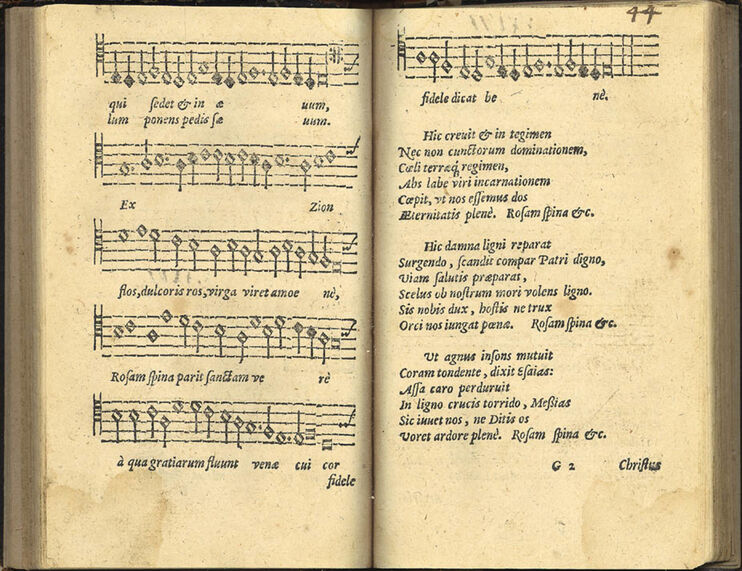 qui ſedet & in æ uum,
lum ponens pedis ſæ uum.
Ex Zion
flos, dulcoris ros, virga viret amoe nè,
Roſam ſpina parit ſanctam ve rè
à qua gratiarum fluunt venæ cui cor
fidele
44
fidele dicat be nè.
Hic creuit & in tegimen
Nec non cunctorum dominationem,
Cœli terræq; regimen,
Abs labe viri incarnationem
Cœpit, vt nos eſſemus dos
Æternitatis plenè. Roſam ſpina &c.
Hic damna ligni reparat
Surgendo, ſcandit compar Patri digno,
Viam ſalutis præparat,
Scelus ob noſtrum mori volens ligno.
Sis nobis dux, hoſtis ne trux
Orci nos iungat pœnæ. Roſam ſpina &c.
Ut agnus inſons mutuit
Coram tondente, dixit Eſaias:
Aſſa caro perduruit
In ligno crucis torrido, Meſsias
Sic iuuet nos, ne Ditis os
Voret ardore plenè. Roſam ſpina &c.
G 2 Chriſtus